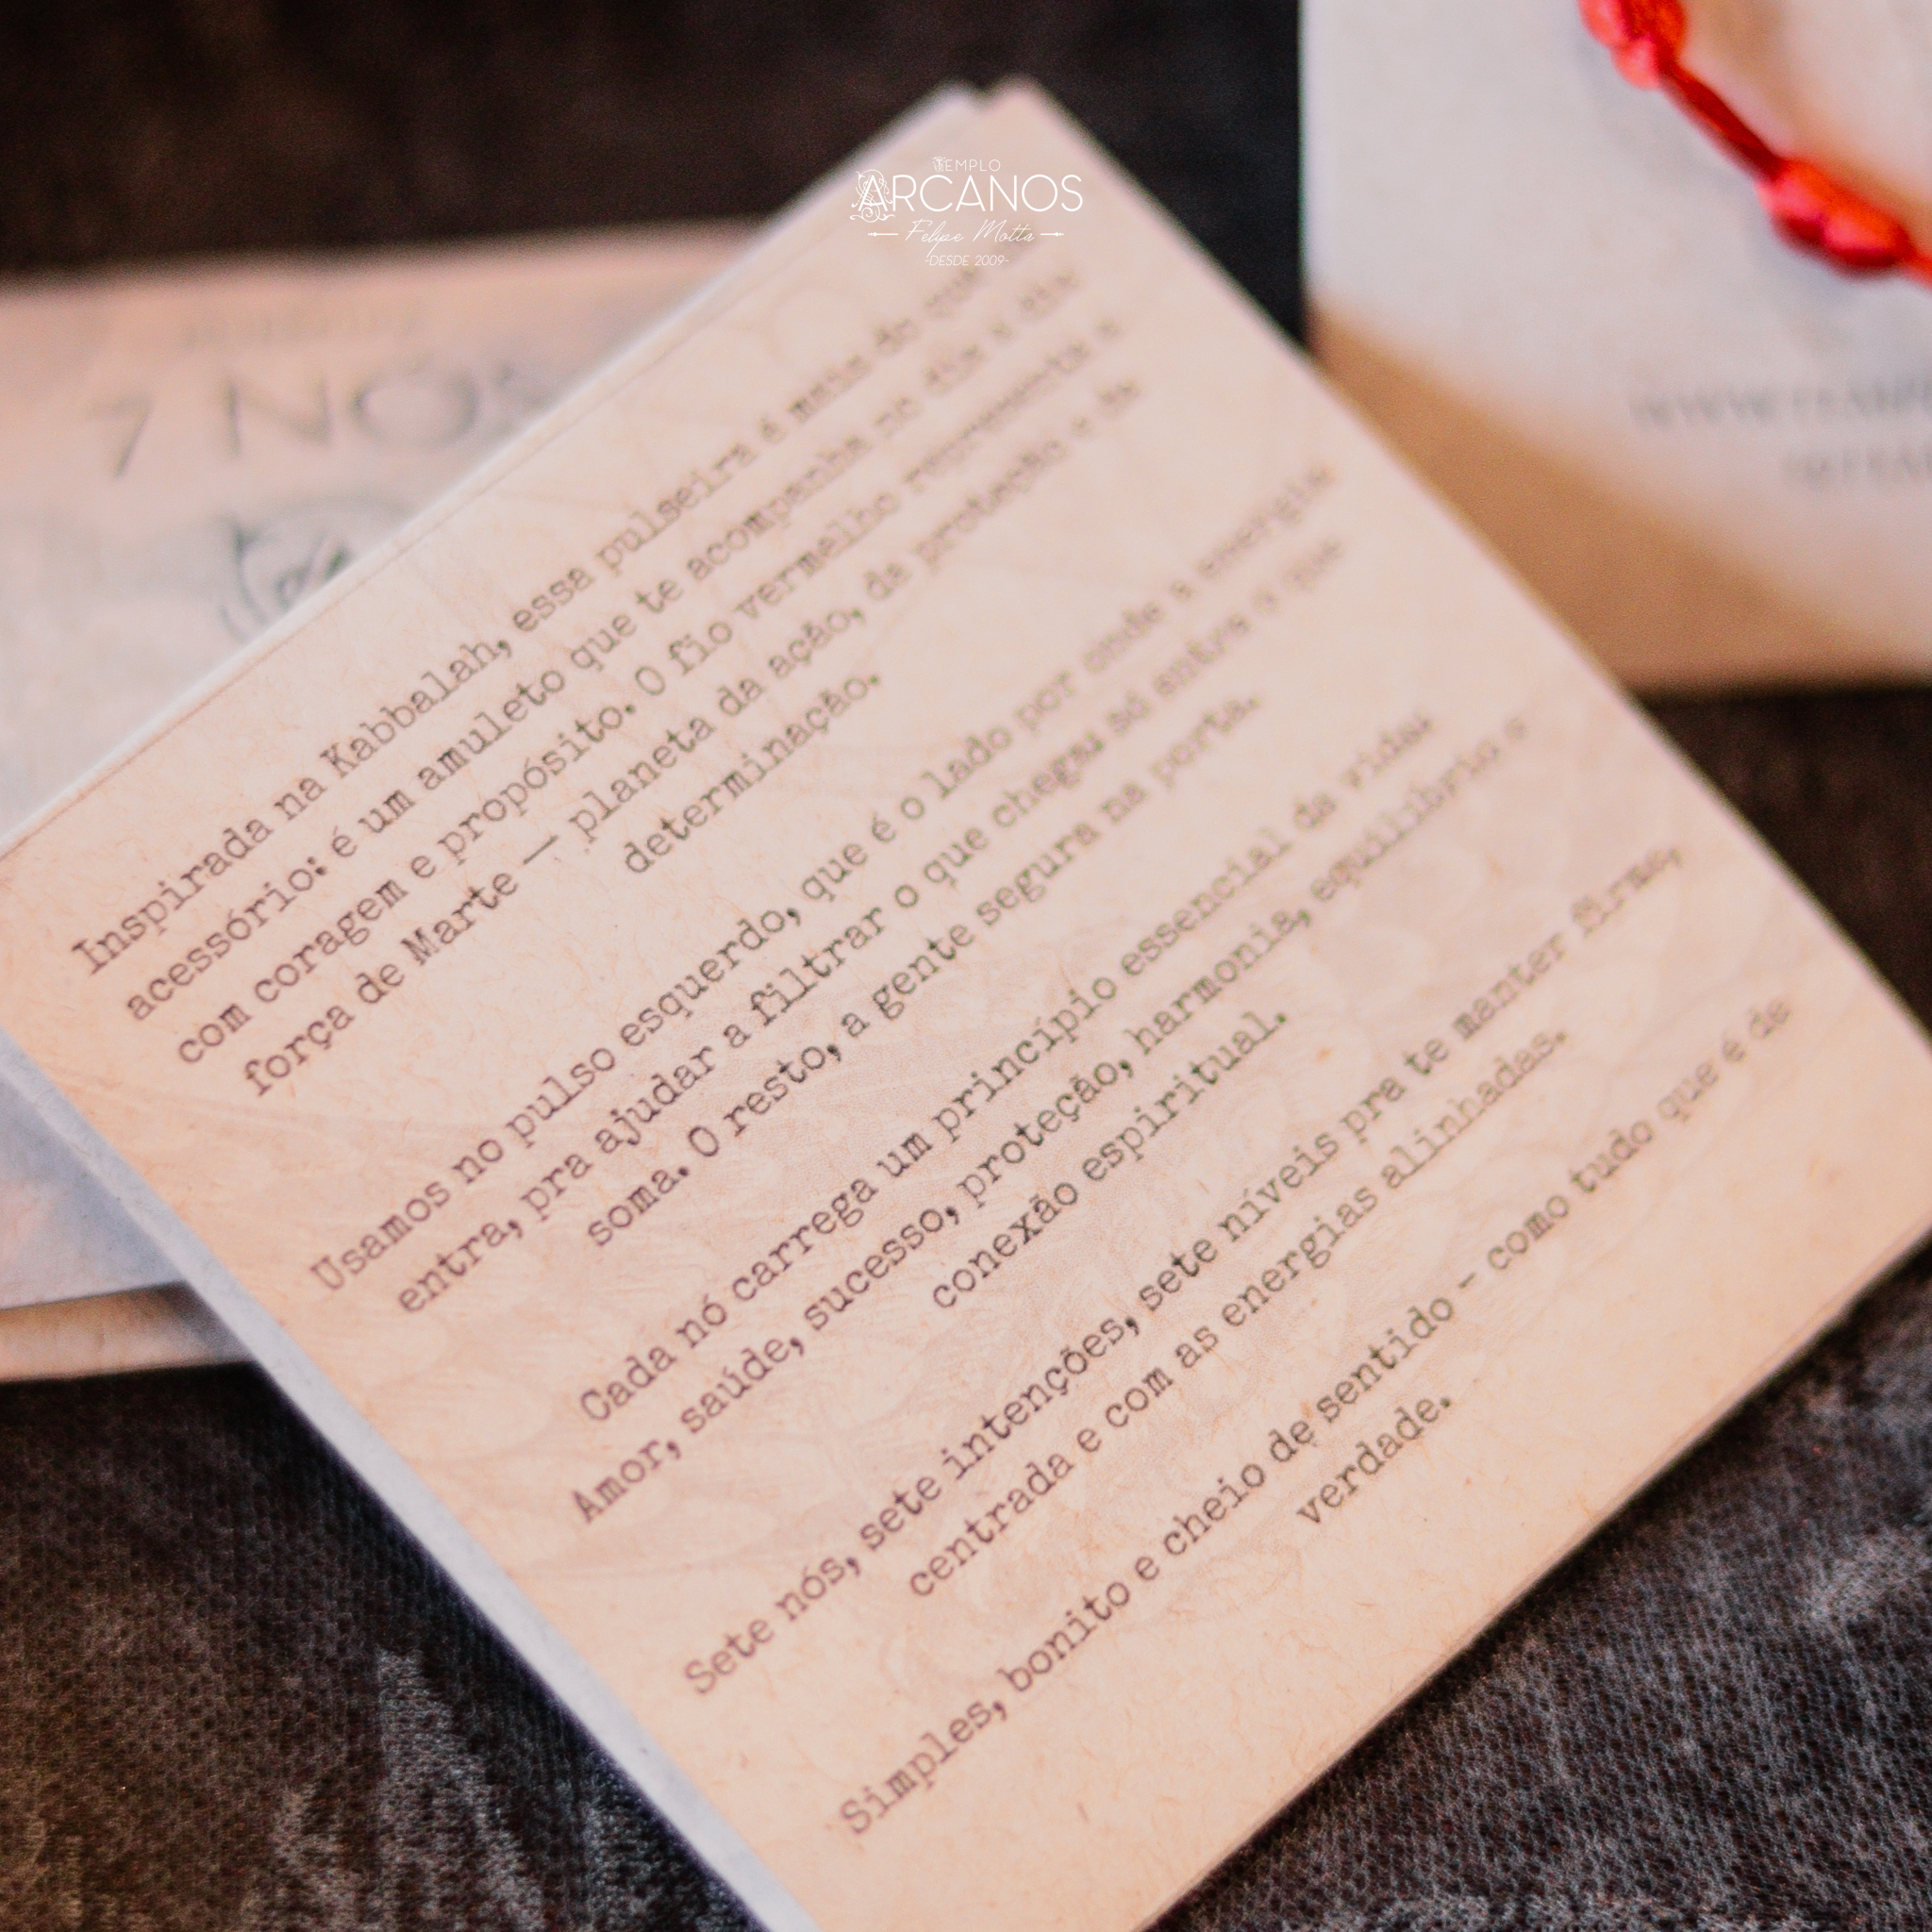 TEMPLO
ARCANOS
Felipe Motta
-DESDE 2009-
7 NÓS
Inspirada na Kabbalah, essa pulseira é mais do que
acessório: é um amuleto que te acompanha no dia a dia
com coragem e propósito. O fio vermelho representa a
força de Marte — planeta da ação, da proteção e da
determinação.
Usamos no pulso esquerdo, que é o lado por onde a energia
entra, pra ajudar a filtrar o que chega: só entra o que
soma. O resto, a gente segura na porta.
Cada nó carrega um princípio essencial da vida:
Amor, saúde, sucesso, proteção, harmonia, equilíbrio e
conexão espiritual.
Sete nós, sete intenções, sete níveis pra te manter firme,
centrada e com as energias alinhadas.
Simples, bonito e cheio de sentido - como tudo que é de
verdade.